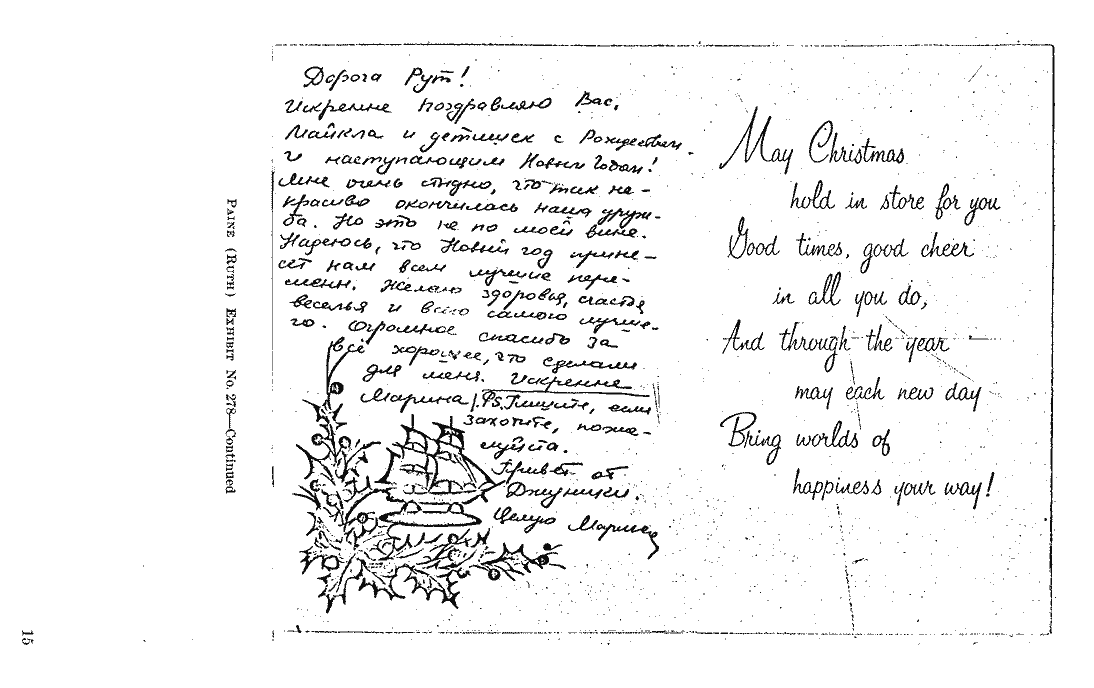 Дорога Рут!
Искренне поздравляю Вас,
Майкла и детишек с Рождеством
и наступающим Новым Годом!
Мне очень стыдно, что так не-
красиво окончилась наша друж-
ба. Но это не по моей вине.
Надеюсь, что Новый год прине-
сёт нам всем лучшие пере-
мены. Желаю здоровья, счастья,
веселья и всего самого лучше-
го. Огромное спасибо за
всё хорошее, что сделали
для меня. Искренне
Марина
Ps. Пишите, если
захотите, пожа-
луйста.
Привет от
Джуники.
Целую Марина
May Christmas
hold in store for you
Good times, good cheer
in all you do,
And through the year
may each new day
Bring worlds of
happiness your way!
PAINE (RUTH) EXHIBIT No. 278—Continued
15